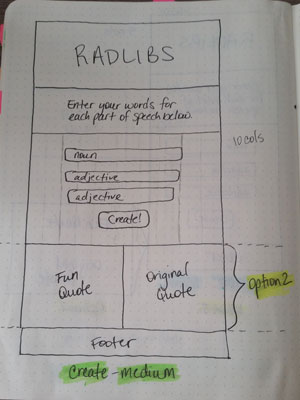 RADLIBS
Enter your words for
each part of speech below.
10 cols
noun
adjective
adjective
Create!
Fun
Quote
Original
Quote
option 2
Footer
Create - medium